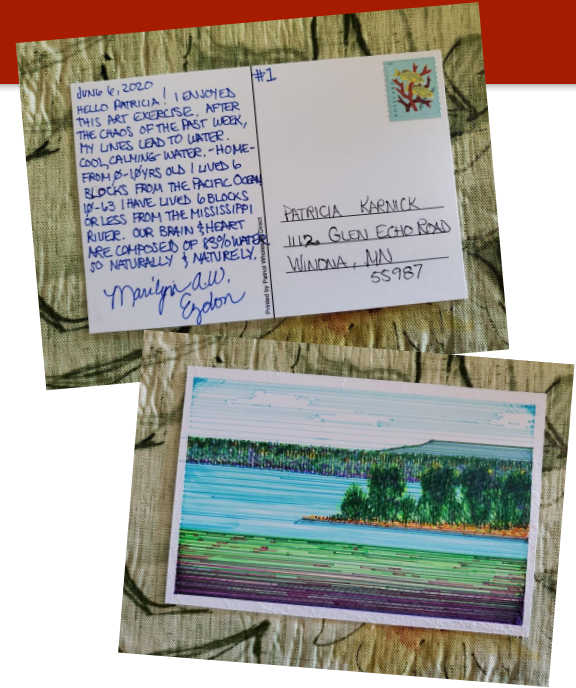 JUNE 6, 2020
HELLO PATRICIA! I ENJOYED
THIS ART EXERCISE. AFTER
THE CHAOS OF THE PAST WEEK,
MY LINES LEAD TO WATER.
COOL, CALMING WATER. -HOME-
FROM 0-10YRS OLD I LIVED 6
BLOCKS FROM THE PACIFIC OCEAN
10-63 I HAVE LIVED 6 BLOCKS
OR LESS FROM THE MISSISSIPPI
RIVER. OUR BRAIN & HEART
ARE COMPOSED OF 83% WATER
SO NATURALLY & NATURELY.
Marilyn A.W.
Ezdon
#1
Printed by Patriot
PATRICIA KARNICK
1112 GLEN ECHO ROAD
WINONA, MN
55987